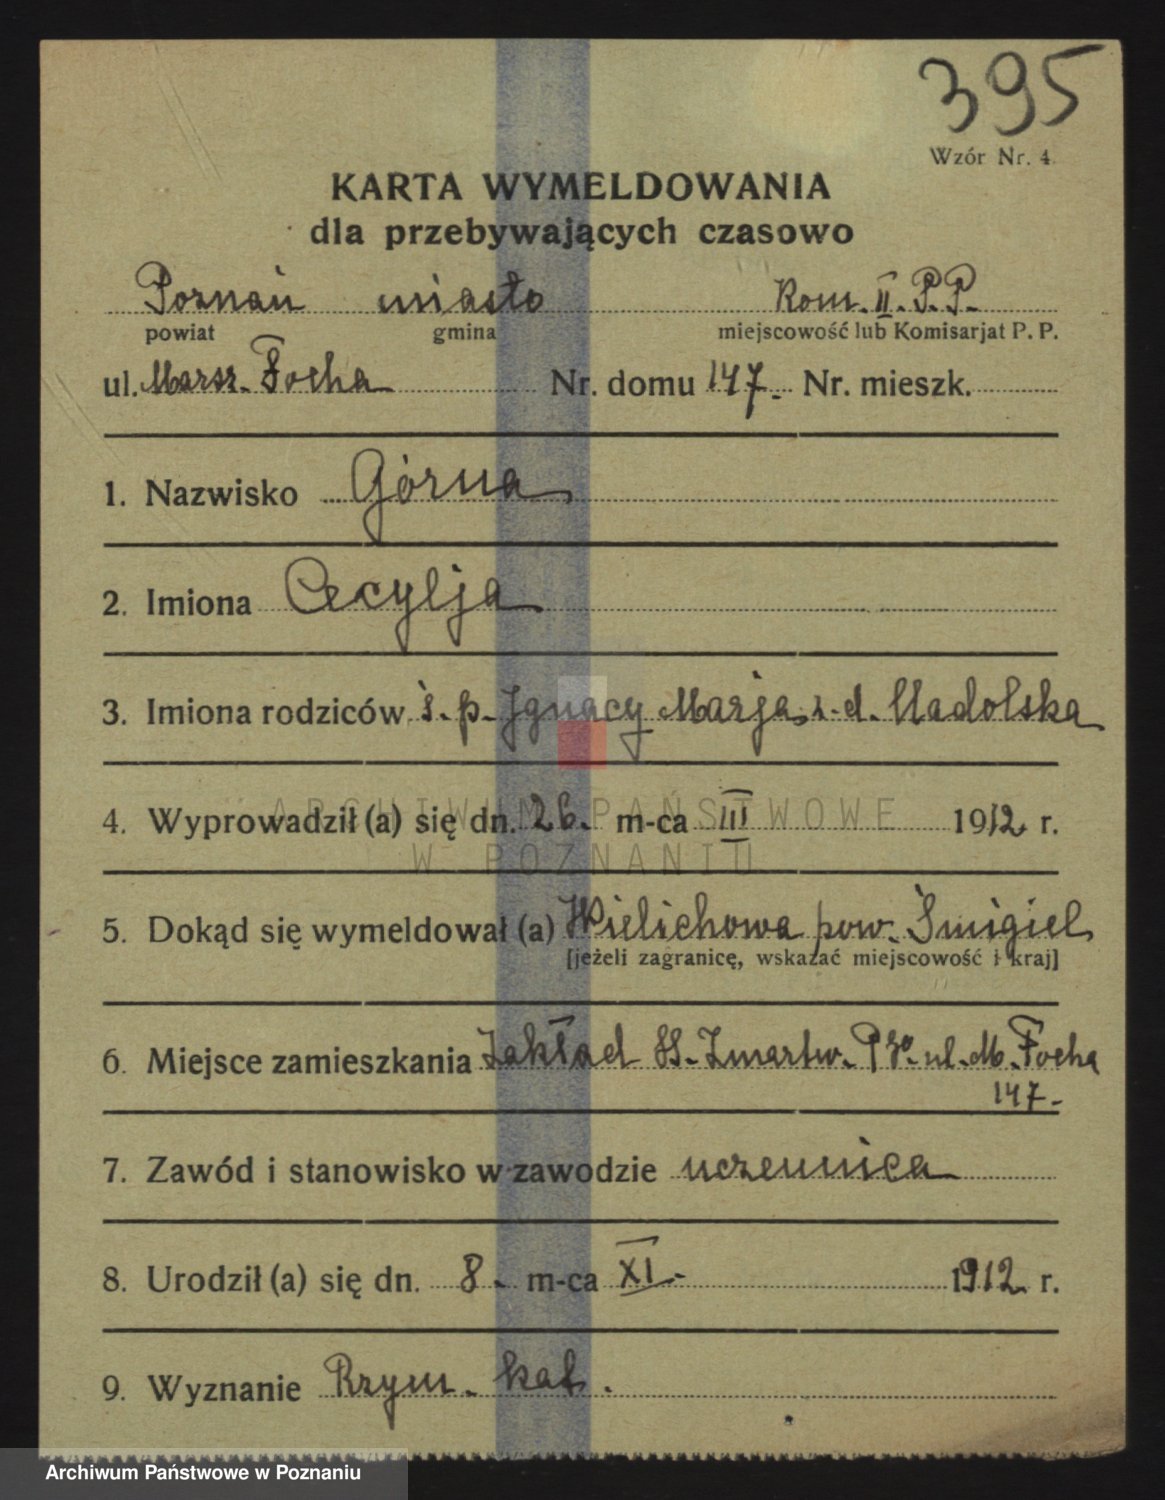 395
Wzór Nr. 4
KARTA WYMELDOWANIA
dla przebywających czasowo
Poznań miasto Kom. II. P.P.
powiat gmina miejscowość lub Komisarjat P. P.
ul. Marsz. Focha Nr. domu 147. Nr. mieszk.
1. Nazwisko Górna
2. Imiona Cecylja
3. Imiona rodziców ś. p. Ignacy Marja z. d. Nadolska
ARCHIWUM PAŃSTWOWE
4. Wyprowadził (a) się dn. 26. m-ca III 1912 r.
W POZNANIU
5. Dokąd się wymeldował (a) Wielichowa pow. Śmigiel
[jeżeli zagranicę, wskazać miejscowość i kraj]
6. Miejsce zamieszkania Zakład SS. Zmartw. P. ul. M. Focha
147.
7. Zawód i stanowisko w zawodzie uczennica
8. Urodził (a) się dn. 8. m-ca XI. 1912 r.
9. Wyznanie Rzym. kat.
Archiwum Państwowe w Poznaniu